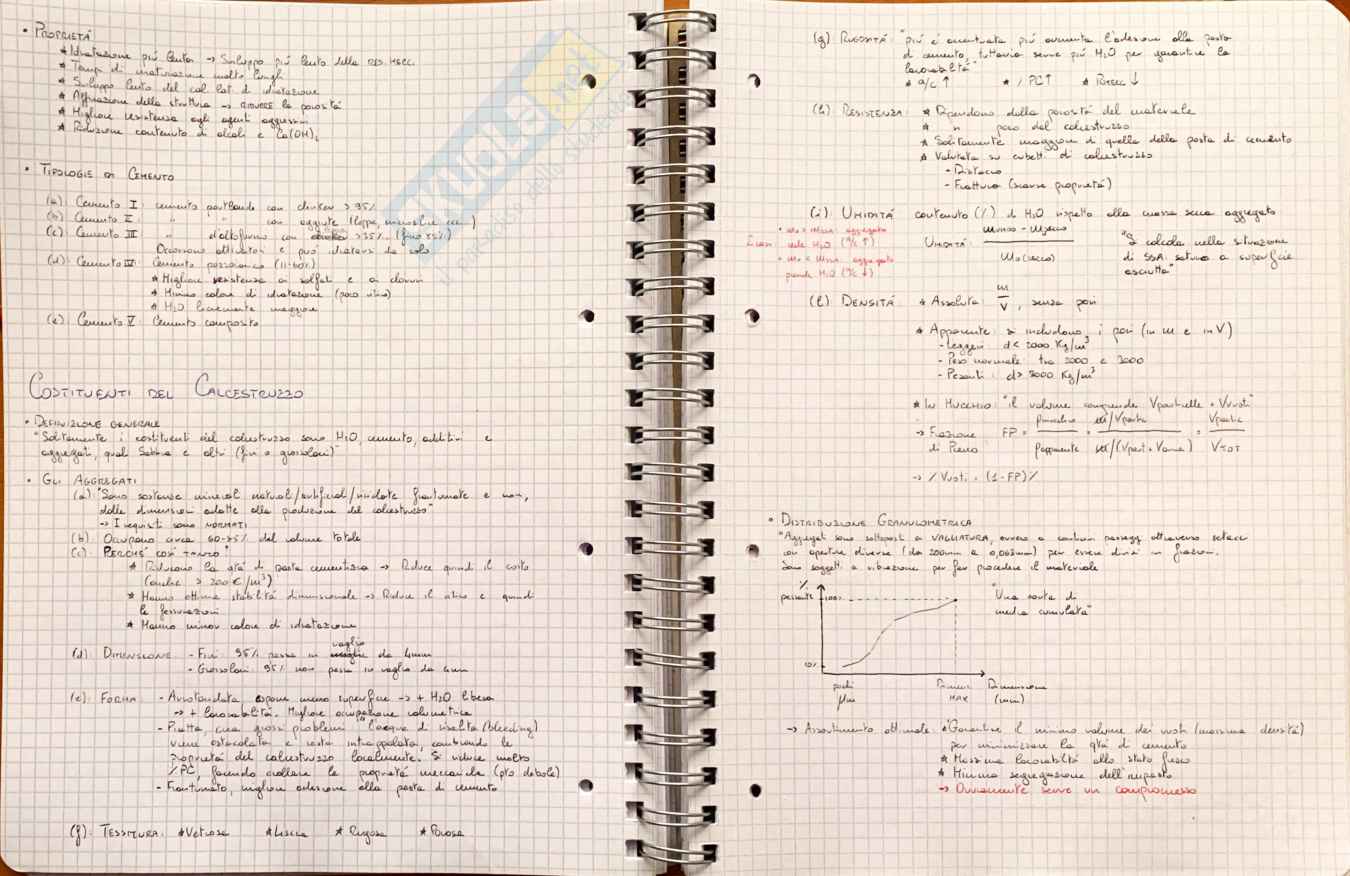 • PROPRIETÁ
★ Idratazione più lenta → Sviluppo più lento della RES. MECC.
★ Tempi di maturazione molto lunghi
★ Sviluppo lento del cal lat. di idratazione
★ Affinazione della struttura → RIDURRE la porosità
★ Migliore resistenza agli agenti aggressivi
★ Riduzione contenuto di alcali e Ca(OH)₂
• TIPOLOGIE DI CEMENTO
(a): Cemento I: cemento portlande con clinker > 95%
(b): Cemento II: " " con aggiunte (loppa, microsilice ecc...)
(c): Cemento III: " d'altoforno con >35% (fino 95%)
Occorrono attivatori e può idratarsi da solo
(d): Cemento IV: Cemento pozzolanico (11-60%)
★ Migliore resistenza ai solfati e ai cloruri
★ Minimo calore di idratazione (poco ritiro)
★ H₂O lievemente maggiore
(e): Cemento V: Cemento composito
COSTITUENTI DEL CALCESTRUZZO
• DEFINIZIONE GENERALE
"Solitamente i costituenti del calcestruzzo sono H₂O, cemento, additivi e
aggregati, quali Sabbia e altri (fini o grossolani)"
• GLI AGGREGATI
(a): "Sono sostanze minerali naturali/artificiali/riciclate frantumate e non,
dalle dimensioni adatte alla produzione del calcestruzzo"
→ I requisiti sono NORMATI
(b): Occupano circa 60-75% del volume totale
(c): PERCHÉ COSÌ TANTO?
★ Riducono la qtá di pasta cementizia → Riduce quindi il costo
(anche > 200€/m³)
★ Hanno ottima stabilità dimensionale → Riduce il ritiro e quindi
le fessurazioni
★ Hanno minor calore di idratazione
(d): DIMENSIONE: - Fini: 95% passa in vaglio da 4mm
- Grossolani: 95% non passa in vaglio da 4mm
(e): FORMA: - Arrotondata espone meno superficie → + H₂O libera
→ + lavorabilità. Migliore occupazione volumetrica
- Piatta, crea grossi problemi: l'acqua di risalita (bleeding)
viene ostacolata e resta intrappolata, cambiando le
proprietà del calcestruzzo localmente. Si riduce molto
/PC, facendo crollare le proprietà meccaniche (pto debole)
- Frantumato, migliore adesione alla pasta di cemento
(f): TESSITURA: ★ Vetrosa ★ Liscia ★ Rugosa ★ Porosa
(g) RUGOSITÀ: "più è accentuata più aumenta l'adesione alla pasta
di cemento, tuttavia serve più H₂O per garantire la
lavorabilità"
★ a/c ↑ ★ /PC↑ ★ Rmecc ↓
(h) RESISTENZA: ★ Dipendono dalla porosità del materiale
★ " poco dal calcestruzzo
★ Solitamente maggiore di quella della pasta di cemento
★ Valutata su cubetti di calcestruzzo
- Distacco
- Frattura (scarse proprietà)
(i) UMIDITÀ: contenuto (%) di H₂O rispetto alla massa secca aggregato
UMIDITÀ: mumido - msecco
mo (secco)
"Si calcola nella situazione
di SSA: saturo a superficie
asciutta"
2 casi:
• mo > mssa: aggregato
cede H₂O (a/c ↑)
• mo < mssa: aggregato
prende H₂O (a/c ↓)
(l) DENSITÀ ★ Assoluta: m/V, senza pori
★ Apparente: si includono i pori (in m e in V)
- Leggeri: d < 2000 Kg/m³
- Peso normale: tra 2000 e 3000
- Pesanti: d > 3000 Kg/m³
★ IN MUCCHIO: "il volume comprende Vparticelle + Vvuoti"
→ Frazione di Pieno FP =
Vpartic
VTOT
→ % Vuoti = (1-FP)%
• DISTRIBUZIONE GRANULOMETRICA
"Aggregati sono sottoposti a VAGLIATURA, ovvero a continui passaggi attraverso setacci
con aperture diverse (da 200mm a 0,063mm) per essere divisi in frazioni.
Sono soggetti a vibrazione per far procedere il materiale
% passante
100%
10%
pochi μm
Diametri MAX
Dimensione (mm)
"Una sorta di
media cumulata"
→ Assortimento ottimale: ★ Garantire il minimo volume dei vuoti (massima densità)
per minimizzare la qtá di cemento
★ Massima lavorabilità allo stato fresco
★ Minima segregazione dell'impasto
→ Ovviamente serve un compromesso
SKUOLA.net